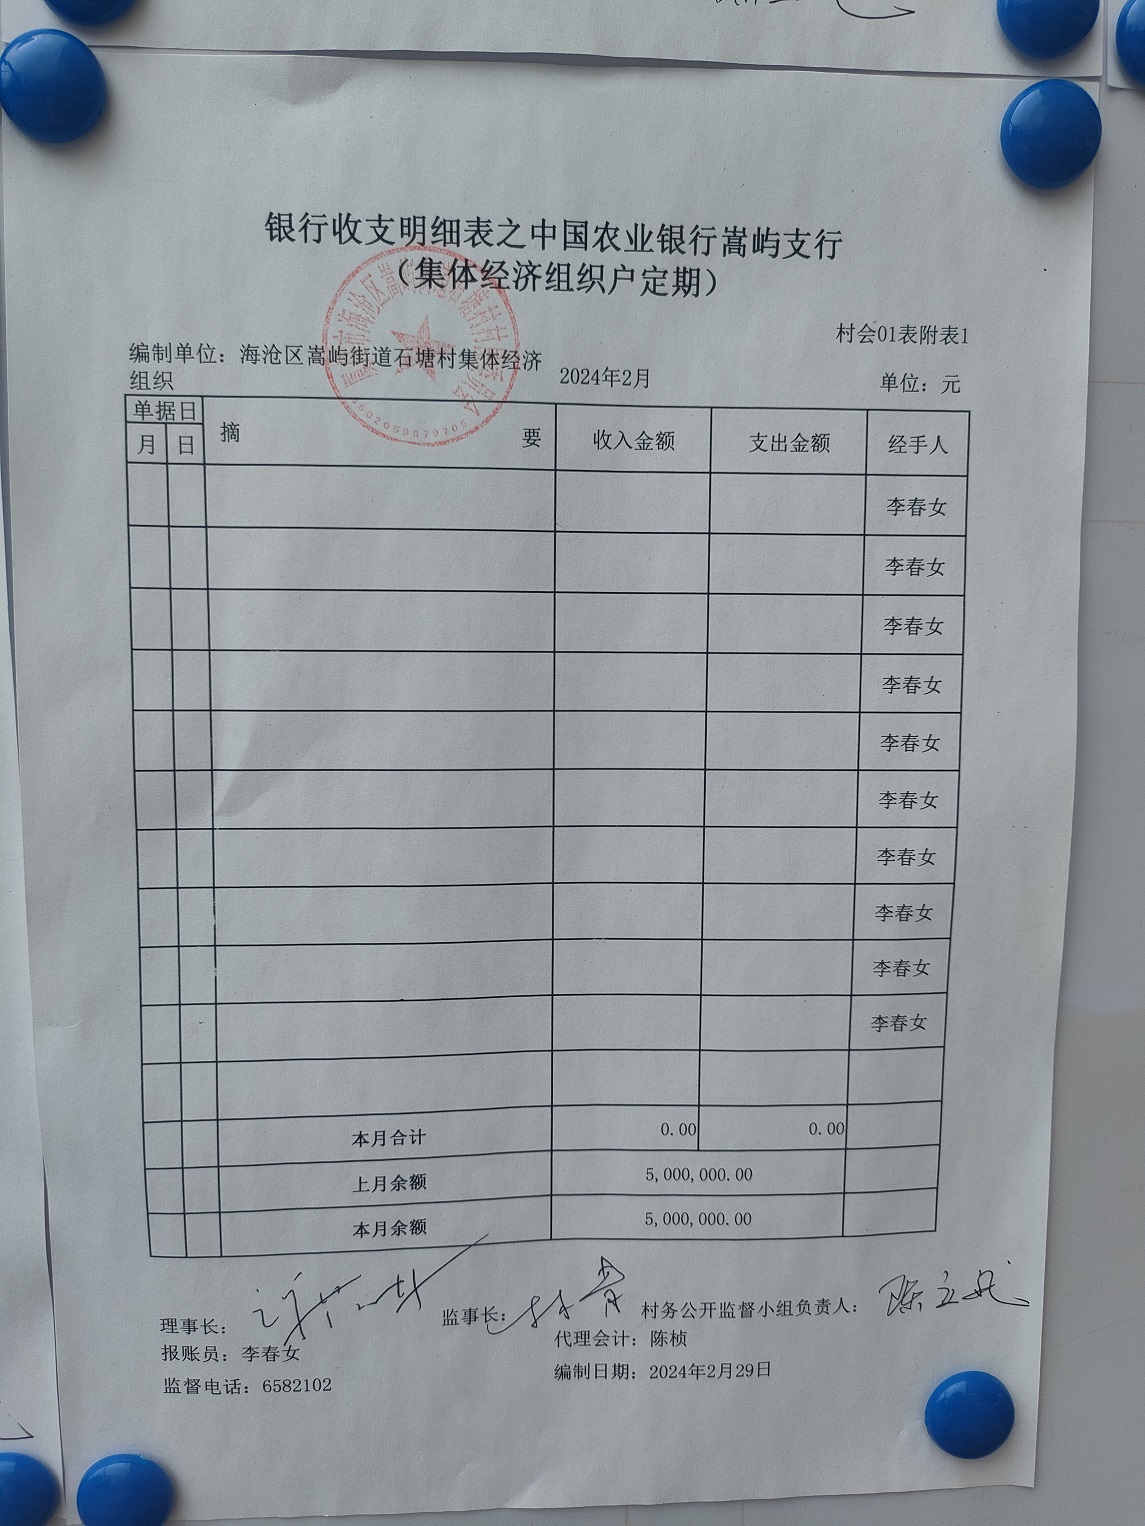 银行收支明细表之中国农业银行嵩屿支行
（集体经济组织户定期）
村会01表附表1
编制单位：海沧区嵩屿街道石塘村集体经济
组织
2024年2月
单位：元
单据日
月 日 摘 要 收入金额 支出金额 经手人
李春女
李春女
李春女
李春女
李春女
李春女
李春女
李春女
李春女
李春女
本月合计 0.00 0.00
上月余额 5,000,000.00
本月余额 5,000,000.00
理事长： 监事长： 村务公开监督小组负责人：
报账员：李春女 代理会计：陈桢
监督电话：6582102 编制日期：2024年2月29日